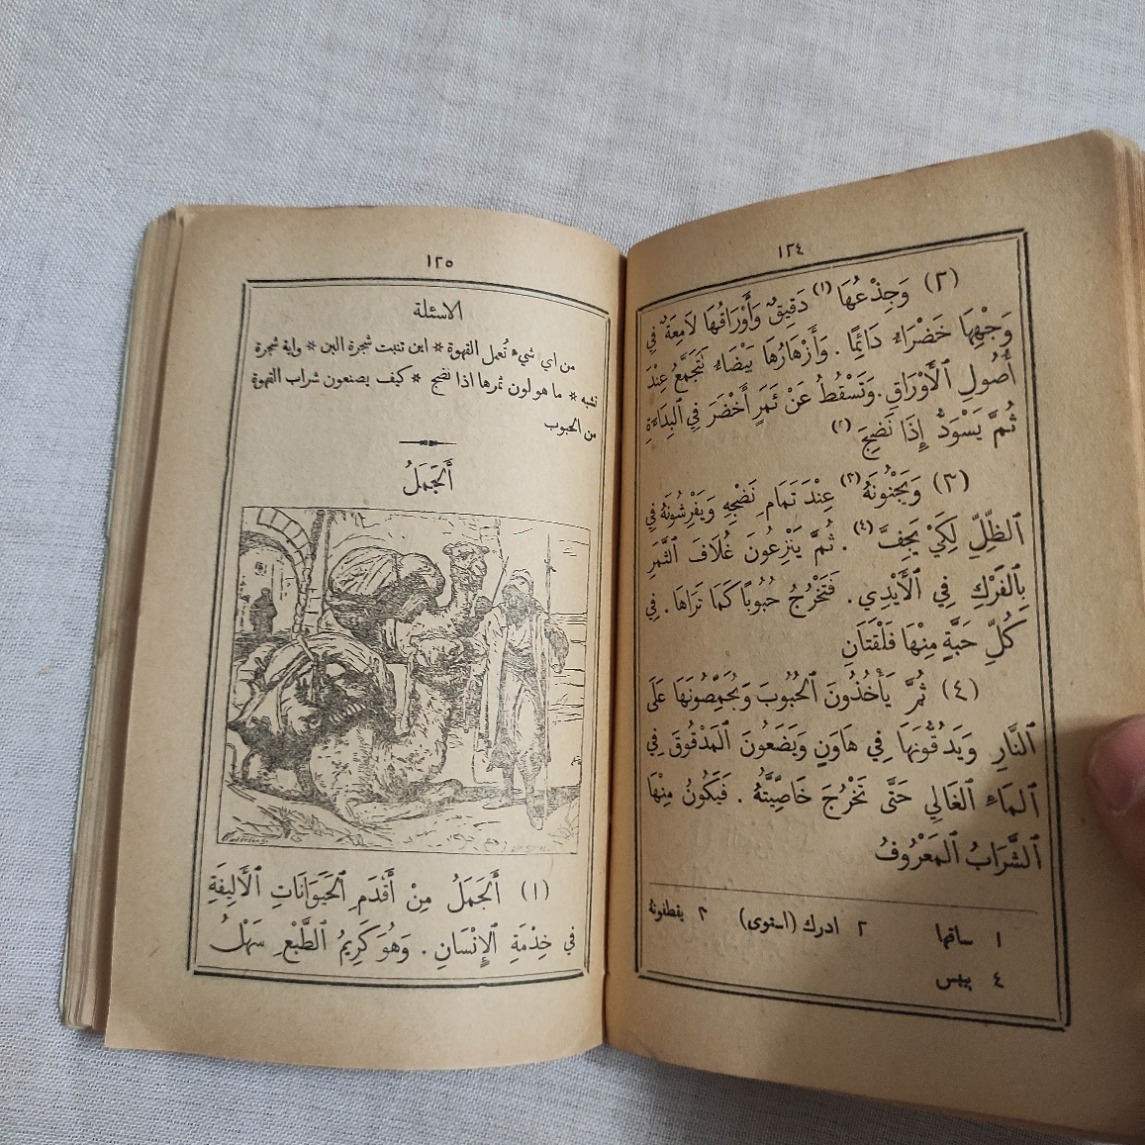 ١٢٤
(٢) وَجِذْعُهَا (١) دَقِيقٌ وَأَوْرَاقُهَا لَامِعَةٌ فِي
وَجْهِهَا خَضْرَاءُ دَائِمًا . وَأَزْهَارُهَا بَيْضَاءُ تَتَجَمَّعُ عِنْدَ
أُصُولِ ٱلْأَوْرَاقِ . وَتَسْقُطُ عَنْ ثَمَرٍ أَخْضَرَ فِي ٱلْبِدَاءَةِ
ثُمَّ يَسْوَدُّ إِذَا نَضِجَ (٢)
(٣) وَيَجْنُونَهُ (٣) عِنْدَ تَمَامِ نَضْجِهِ وَيَفْرِشُونَهُ فِي
ٱلظِّلِّ لِكَيْ يَجِفَّ (٤) . ثُمَّ يَنْزِعُونَ غُلَافَ ٱلثَّمَرِ
بِٱلْفَرْكِ فِي ٱلْأَيْدِي . فَتَخْرُجُ حُبُوبًا كَمَا تَرَاهَا . فِي
كُلِّ حَبَّةٍ مِنْهَا فَلْقَتَانِ
(٤) ثُمَّ يَأْخُذُونَ ٱلْحُبُوبَ وَيُحَمِّصُونَهَا عَلَى
ٱلنَّارِ وَيَدُقُّونَهَا فِي هَاوَنٍ وَيَضَعُونَ ٱلْمَدْقُوقَ فِي
ٱلْمَاءِ ٱلْغَالِي حَتَّى تَخْرُجَ خَاصِّيَّتُهُ . فَيَكُونُ مِنْهَا
ٱلشَّرَابُ ٱلْمَعْرُوفُ
١ ساقها ٢ ادرك (استوى) ٣ يقطفونهُ
٤ ييبس
١٢٥
الاسئلة
من اي شيءٍ تُعمل القهوة * اين تنبت شجرة البن * واية شجرة
تشبه * ما هو لون ثمرها اذا نضج * كيف يصنعون شراب القهوة
من الحبوب
أَلْجَمَلُ
(١) أَلْجَمَلُ مِنْ أَقْدَمِ ٱلْحَيَوَانَاتِ ٱلْأَلِيفَةِ
فِي خِدْمَةِ ٱلْإِنْسَانِ . وَهُوَ كَرِيمُ ٱلطَّبْعِ سَهْلُ